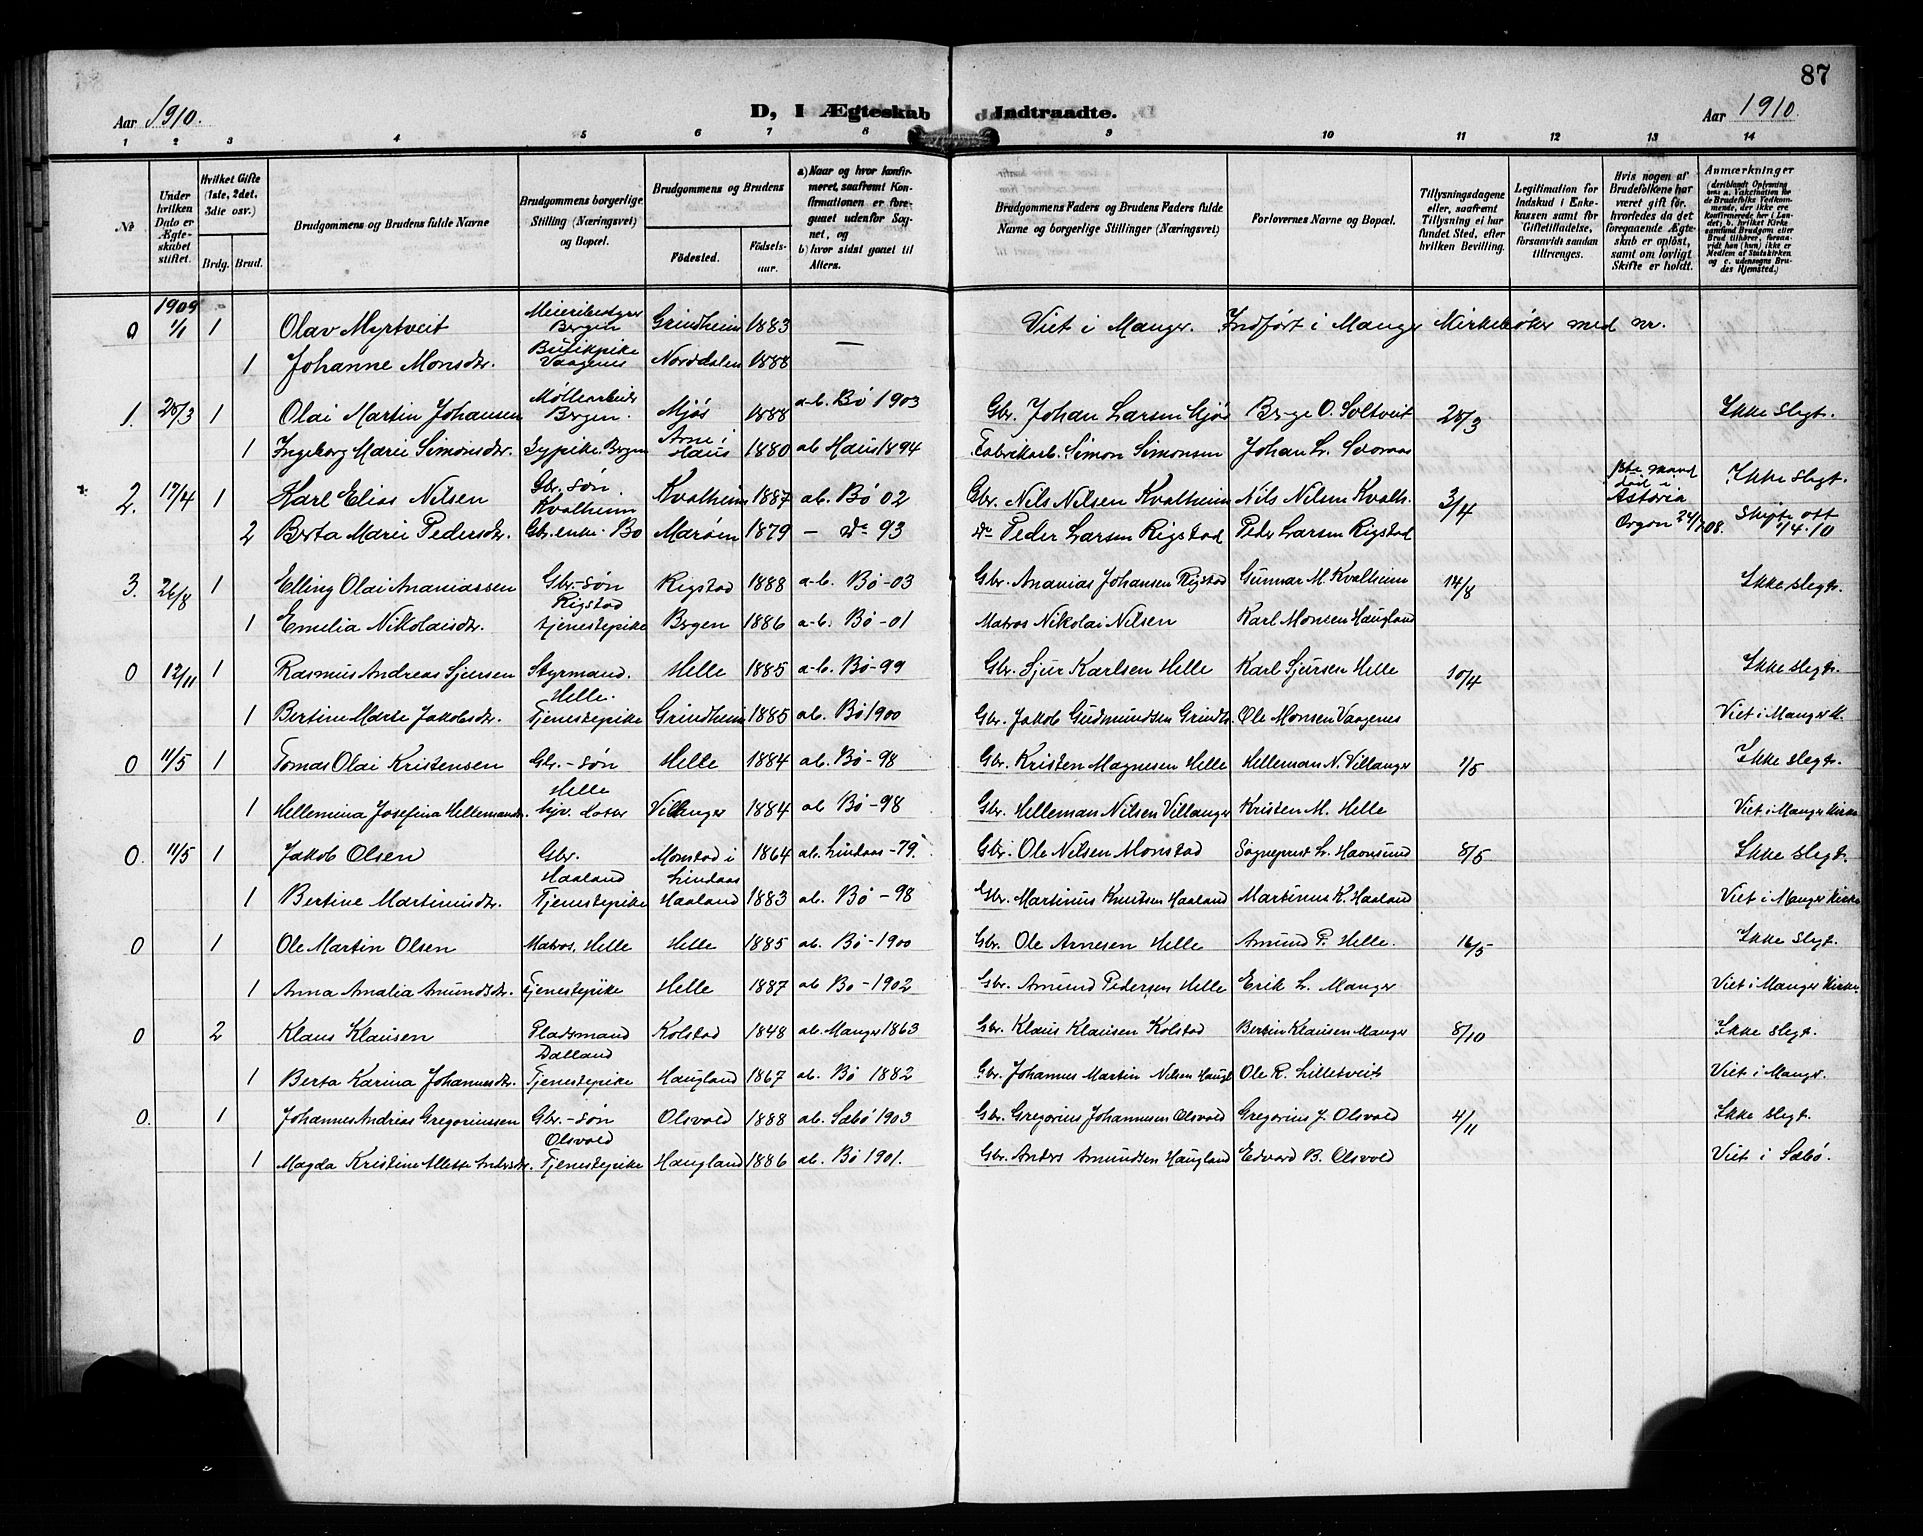 87
Aar 1910.
D, I Ægteskab Indtraadte.
Aar 1910.
1 2 3 4 5 6 7 8 9 10 11 12 13 14
№
Under hvilken Dato er Ægteskabet stiftet.
Hvilket Gifte (1ste, 2det, 3die osv.)
Brdg. Brud.
Brudgommens og Brudens fulde Navne
Brudgommens borgerlige Stilling (Næringsvei) og Bopæl.
Brudgommens og Brudens
Fødested. Fødselsaar.
a) Naar og hvor konfirmeret, saafremt Konfirmationen er foregaaet udenfor Sognet, og
b) hvor sidst gaaet til Alters.
Brudgommens Faders og Brudens Faders fulde Navne og borgerlige Stillinger (Næringsvei)
Forlovernes Navne og Bopæl.
Tillysningsdagene eller, saafremt Tillysning ei har fundet Sted, efter hvilken Bevilling.
Legitimation for Indskud i Enkekassen samt for Giftetilladelse, forsaavidt saadan tiltrænges.
Hvis nogen af Brudefolkene har været gift før, hvorledes da det foregaaende Ægteskab er opløst, samt om lovligt Skifte er holdt.
Anmærkninger
1909
0 1/1 1 Olav Myrtveit Meieribestyrer Bergen Grindheim 1883 — Viet i Manger. Indført i Manger Kirkebøker med nr.
1 Johanne Monsdtr. Butikpike Vaagenes Norddalen 1888
1. 28/3 1 Olai Martin Johansen Møllearbeider Bergen. Mjøs 1888 a-b. Bø 1903 Gbr. Johan Larsen Mjøs Børge O. Soltveit 28/3 Ikke slegt.
1 Ingeborg Marie Simonsdtr. Sypike. Bergen Arne i Haus 1880 ab Haus 1894 Fabrikarb. Simon Simonsen Johan L.
2. 17/4 1 Karl Elias Nilsen Gbr. søn. Kvalheim Kvalheim 1887 ab. Bø 02 Gbr. Nils Nilsen Kvalheim Nils Nilsen Kvalh. 3/4 mand død i Astoria Ikke slegt.
2 Berta Marie Pedersdtr. Gbr. enke. Bø Marøen 1879 — do 93 do Peder Larsen Rigstad Peder Larsen Rigstad Orgon 24/7 08. Skifte att 1/4 10
3. 26/8 1 Elling Olai Ananiassen Gbr-søn Rigstad Rigstad 1888 a-b. Bø-03 Gbr. Ananias Johansen Rigstad Gunnar M. Kvalheim 14/8 Ikke slegt.
1 Emelia Nikolaisdtr. tjenestepike Bergen 1886 a-b. Bø-01 Matros Nikolai Nilsen Karl Monsen Haugland
0 12/11 1 Rasmus Andreas Sjursen Styrmand. Helle. Helle 1885 a-b. Bø-99 Gbr. Sjur Karlsen Helle Karl Sjursen Helle 10/4 Ikke slegt.
1 Bertine Marie Jakobsdtr. Tjenestepike Grindheim 1885 ab. Bø 1900 Gbr. Jakob Gudmundsen Grindh. Ole Monsen Vaagenes Viet i Manger K.
0 11/5 1 Tomas Olai Kristensen Gbr.-søn Helle Helle 1884 ab. Bø-98 Gbr. Kristen Magnesen Helle Helleman N. Villanger 1/5 Ikke slegt.
1 Hellemina Josefina Hellemansdtr. Gbr. datter Villanger 1884 ab Bø-98 Gbr. Helleman Nilsen Villanger Kristen M. Helle Viet i Manger Kirke
0. 11/5 1 Jakob Olsen Gbr. Haaland Monstad i Lindaas 1864 ab. Lindaas-79. Gbr. Ole Nilsen Monstad Sogneprest L. 8/5 Ikke slegt.
1 Bertine Martinusdtr. Tjenestepike Haaland 1883 ab. Bø-98 Gbr. Martinus Knutsen Haaland Martinus K. Haaland Viet i Manger Kirke
0 1 Ole Martin Olsen Matros, Helle Helle 1885 ab. Bø-1900 Gbr. Ole Arnesen Helle Amund P. Helle. 16/5 Ikke slegt.
1 Anna Amalia Amundsdtr. Tjenestepike Helle 1887 ab Bø-1902 Gbr. Amund Pedersen Helle Erik L. Manger Viet i Manger Kirke
0 2 Klaus Klausen Pladsmand Dalland Kolstad 1848 ab. Manger 1863 Gbr. Klaus Klausen Kolstad Bertin Klausen Manger 8/10 Ikke slegt.
1 Berta Karina Johannesdtr. Tjenestepike Haugland 1867 ab. Bø 1882 Gbr. Johannes Martin Nilsen Haugl Ole R. Lilletveit Viet i Manger.
0. 1 Johannes Andreas Gregoriussen Gbr-søn Olsvold Olsvold 1888 ab. Sæbø 1903 Gbr. Gregorius Johannesen Olsvold Gregorius J. Olsvold 4/11 Ikke slegt.
1 Magda Kristine Alette Andersdtr. Tjenestepike Haugland 1886 ab. Bø 1901. Gbr. Anders Amundsen Haugland Edvard B. Olsvold Viet i Sæbø.